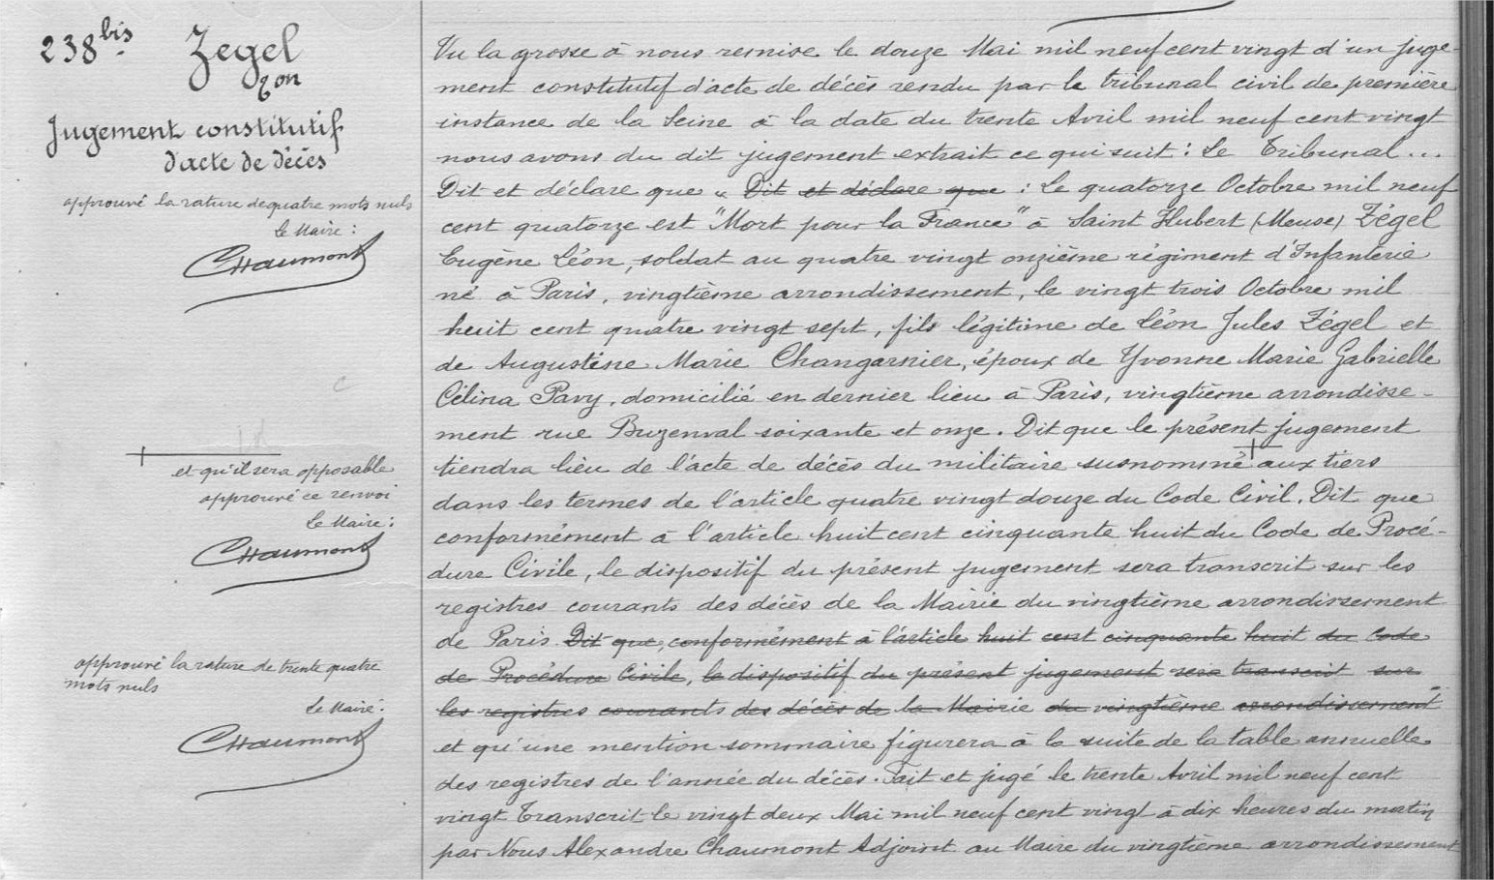 238 bis
Zegel
Jugement constitutif
d'acte de décès
approuvé la rature de quatre mots nuls
Le Maire :
Chaumont
et qu'il sera opposable
approuvé ce renvoi
Le Maire :
Chaumont
approuvé la rature de trente quatre
mots nuls
Le Maire :
Chaumont
Vu la grosse à nous remise le douze Mai mil neuf cent vingt d'un juge-
ment constitutif d'acte de décès rendu par le tribunal civil de première
instance de la Seine à la date du trente Avril mil neuf cent vingt
nous avons du dit jugement extrait ce qui suit : Le Tribunal ...
Dit et déclare que " Dit et déclare que : Le quatorze Octobre mil neuf
cent quatorze est "Mort pour la France" à Saint Hubert (Meuse) Zégel
Eugène Léon, soldat au quatre vingt onzième régiment d'Infanterie
né à Paris, vingtième arrondissement, le vingt trois Octobre mil
huit cent quatre vingt sept, fils légitime de Léon Jules Zégel et
de Augustine Marie Changarnier, époux de Yvonne Marie Gabrielle
Célina Pavy, domicilié en dernier lieu à Paris, vingtième arrondisse-
ment rue Buzenval soixante et onze. Dit que le présent jugement
tiendra lieu de l'acte de décès du militaire susnommé aux tiers
dans les termes de l'article quatre vingt douze du Code Civil. Dit que
conformément à l'article huit cent cinquante huit du Code de Procé-
dure Civile, le dispositif du présent jugement sera transcrit sur les
registres courants des décès de la Mairie du vingtième arrondissement
de Paris. Dit que, conformément à l'article huit cent cinquante huit du Code
de Procédure Civile, le dispositif du présent jugement sera transcrit sur
les registres courants des décès de la Mairie du vingtième arrondissement
et qu'une mention sommaire figurera à la suite de la table annuelle
des registres de l'année du décès. Fait et jugé le trente Avril mil neuf cent
vingt Transcrit le vingt deux Mai mil neuf cent vingt à dix heures du matin
par Nous Alexandre Chaumont Adjoint au Maire du vingtième arrondissement